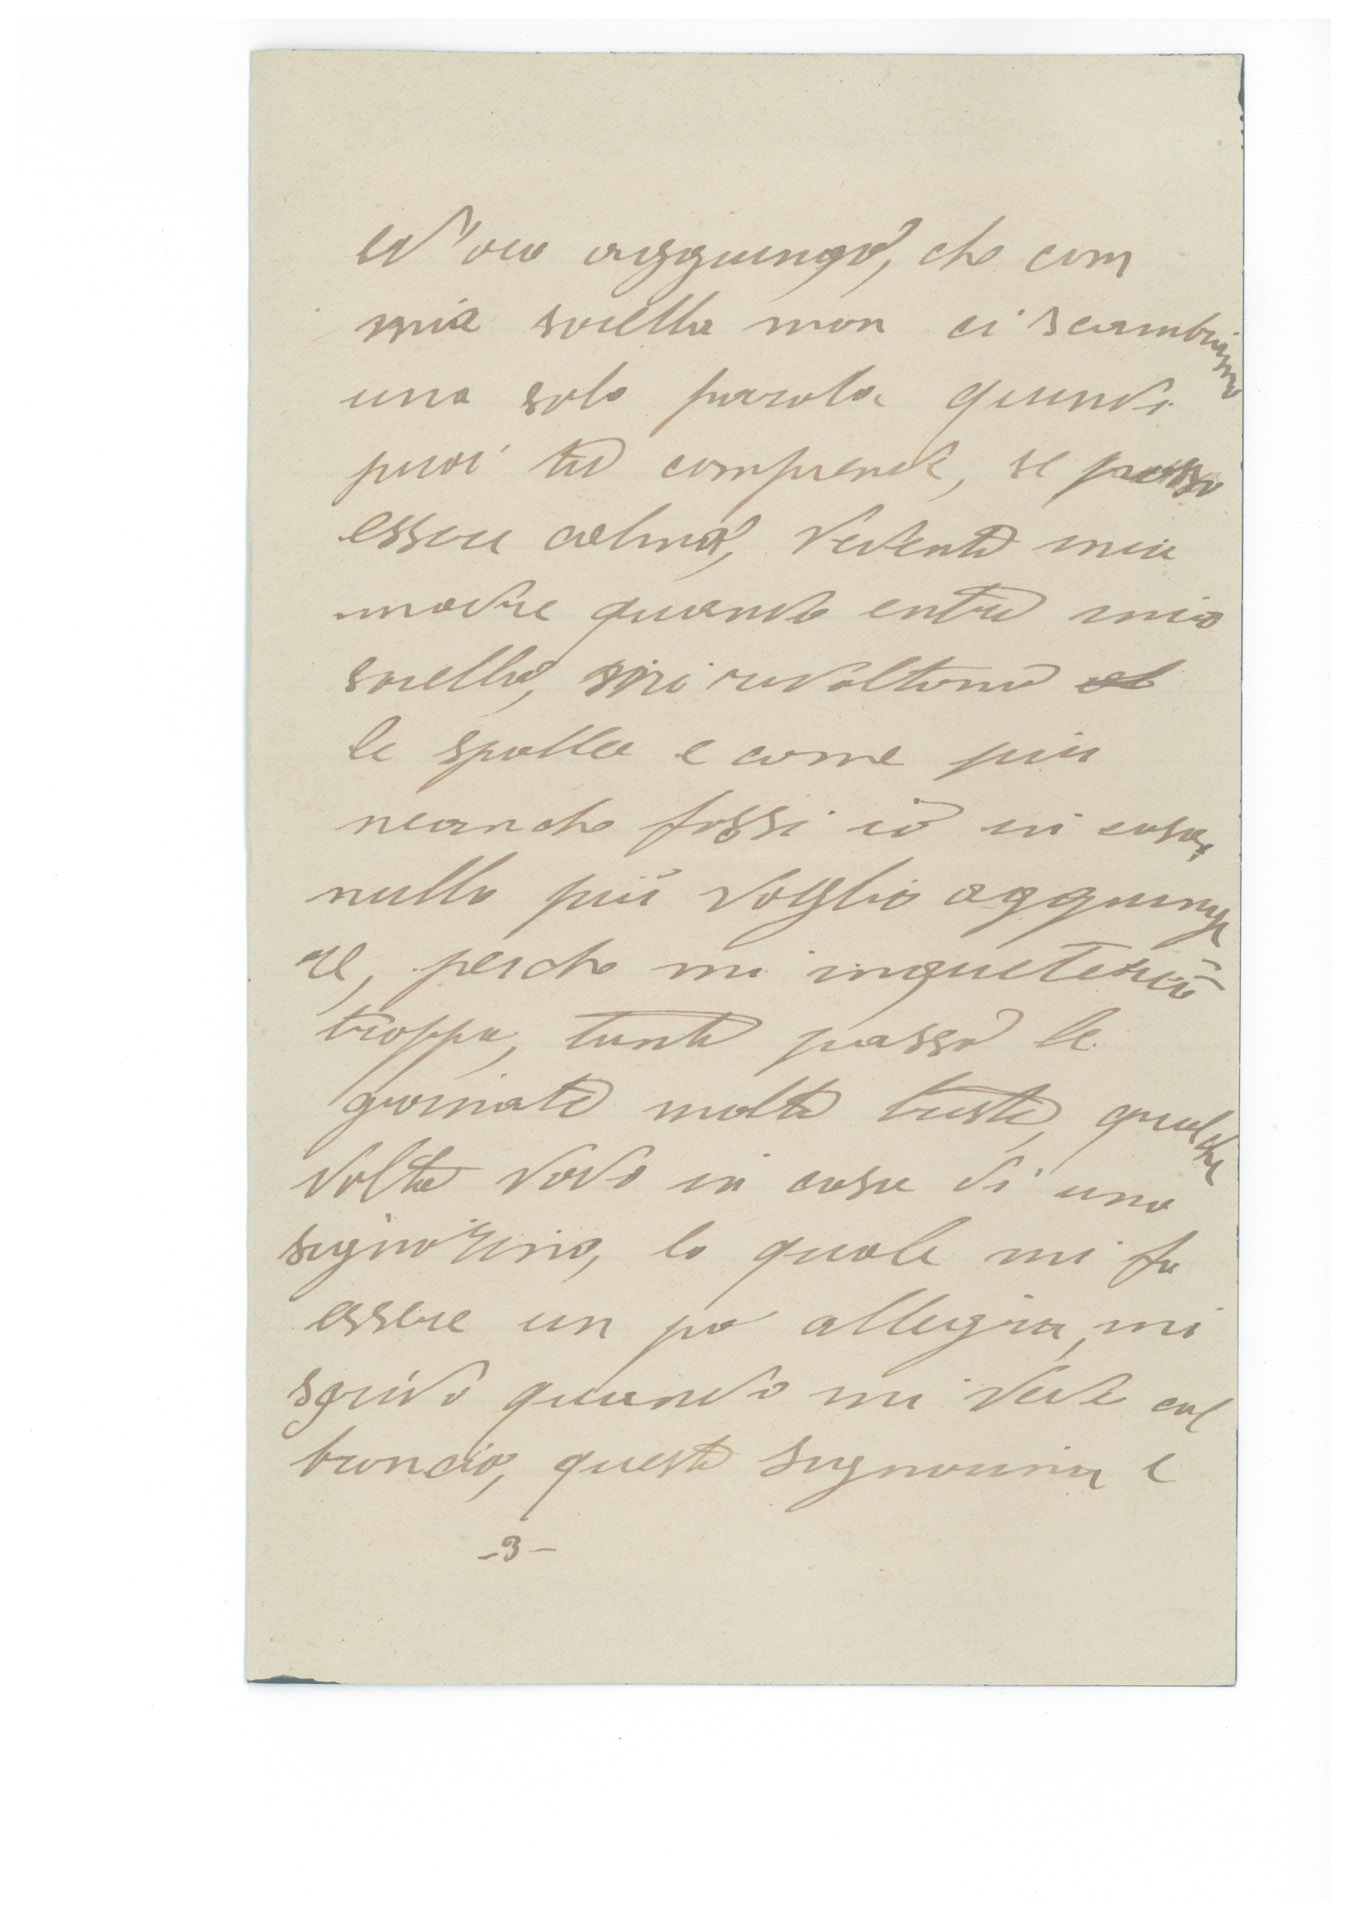 ed ora aggiungo, che com
mia sorella non ci scambiamo
una sola parola quindi
puoi tu comprende, se posso
essere calma, vedente mia
madre quando entra mia
sorella, mi rivoltono
le spalle e come più
neanche fossi io in casa,
nulla più voglio aggiunge
re, perche mi inqueterei
troppa, tanto passo le
giornate molte triste, qualche
volta vado in casa di una
signorina, la quale mi fa
essere un po allegria, mi
sgrida quando mi vede col
broncio, questa signorina e
-3-